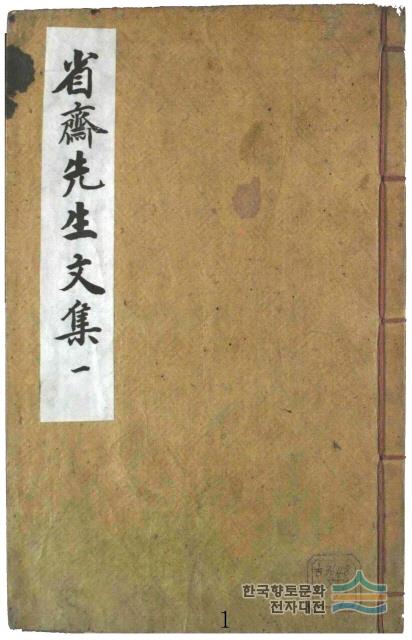 省齋先生文集一
한국향토문화
전자대전
1